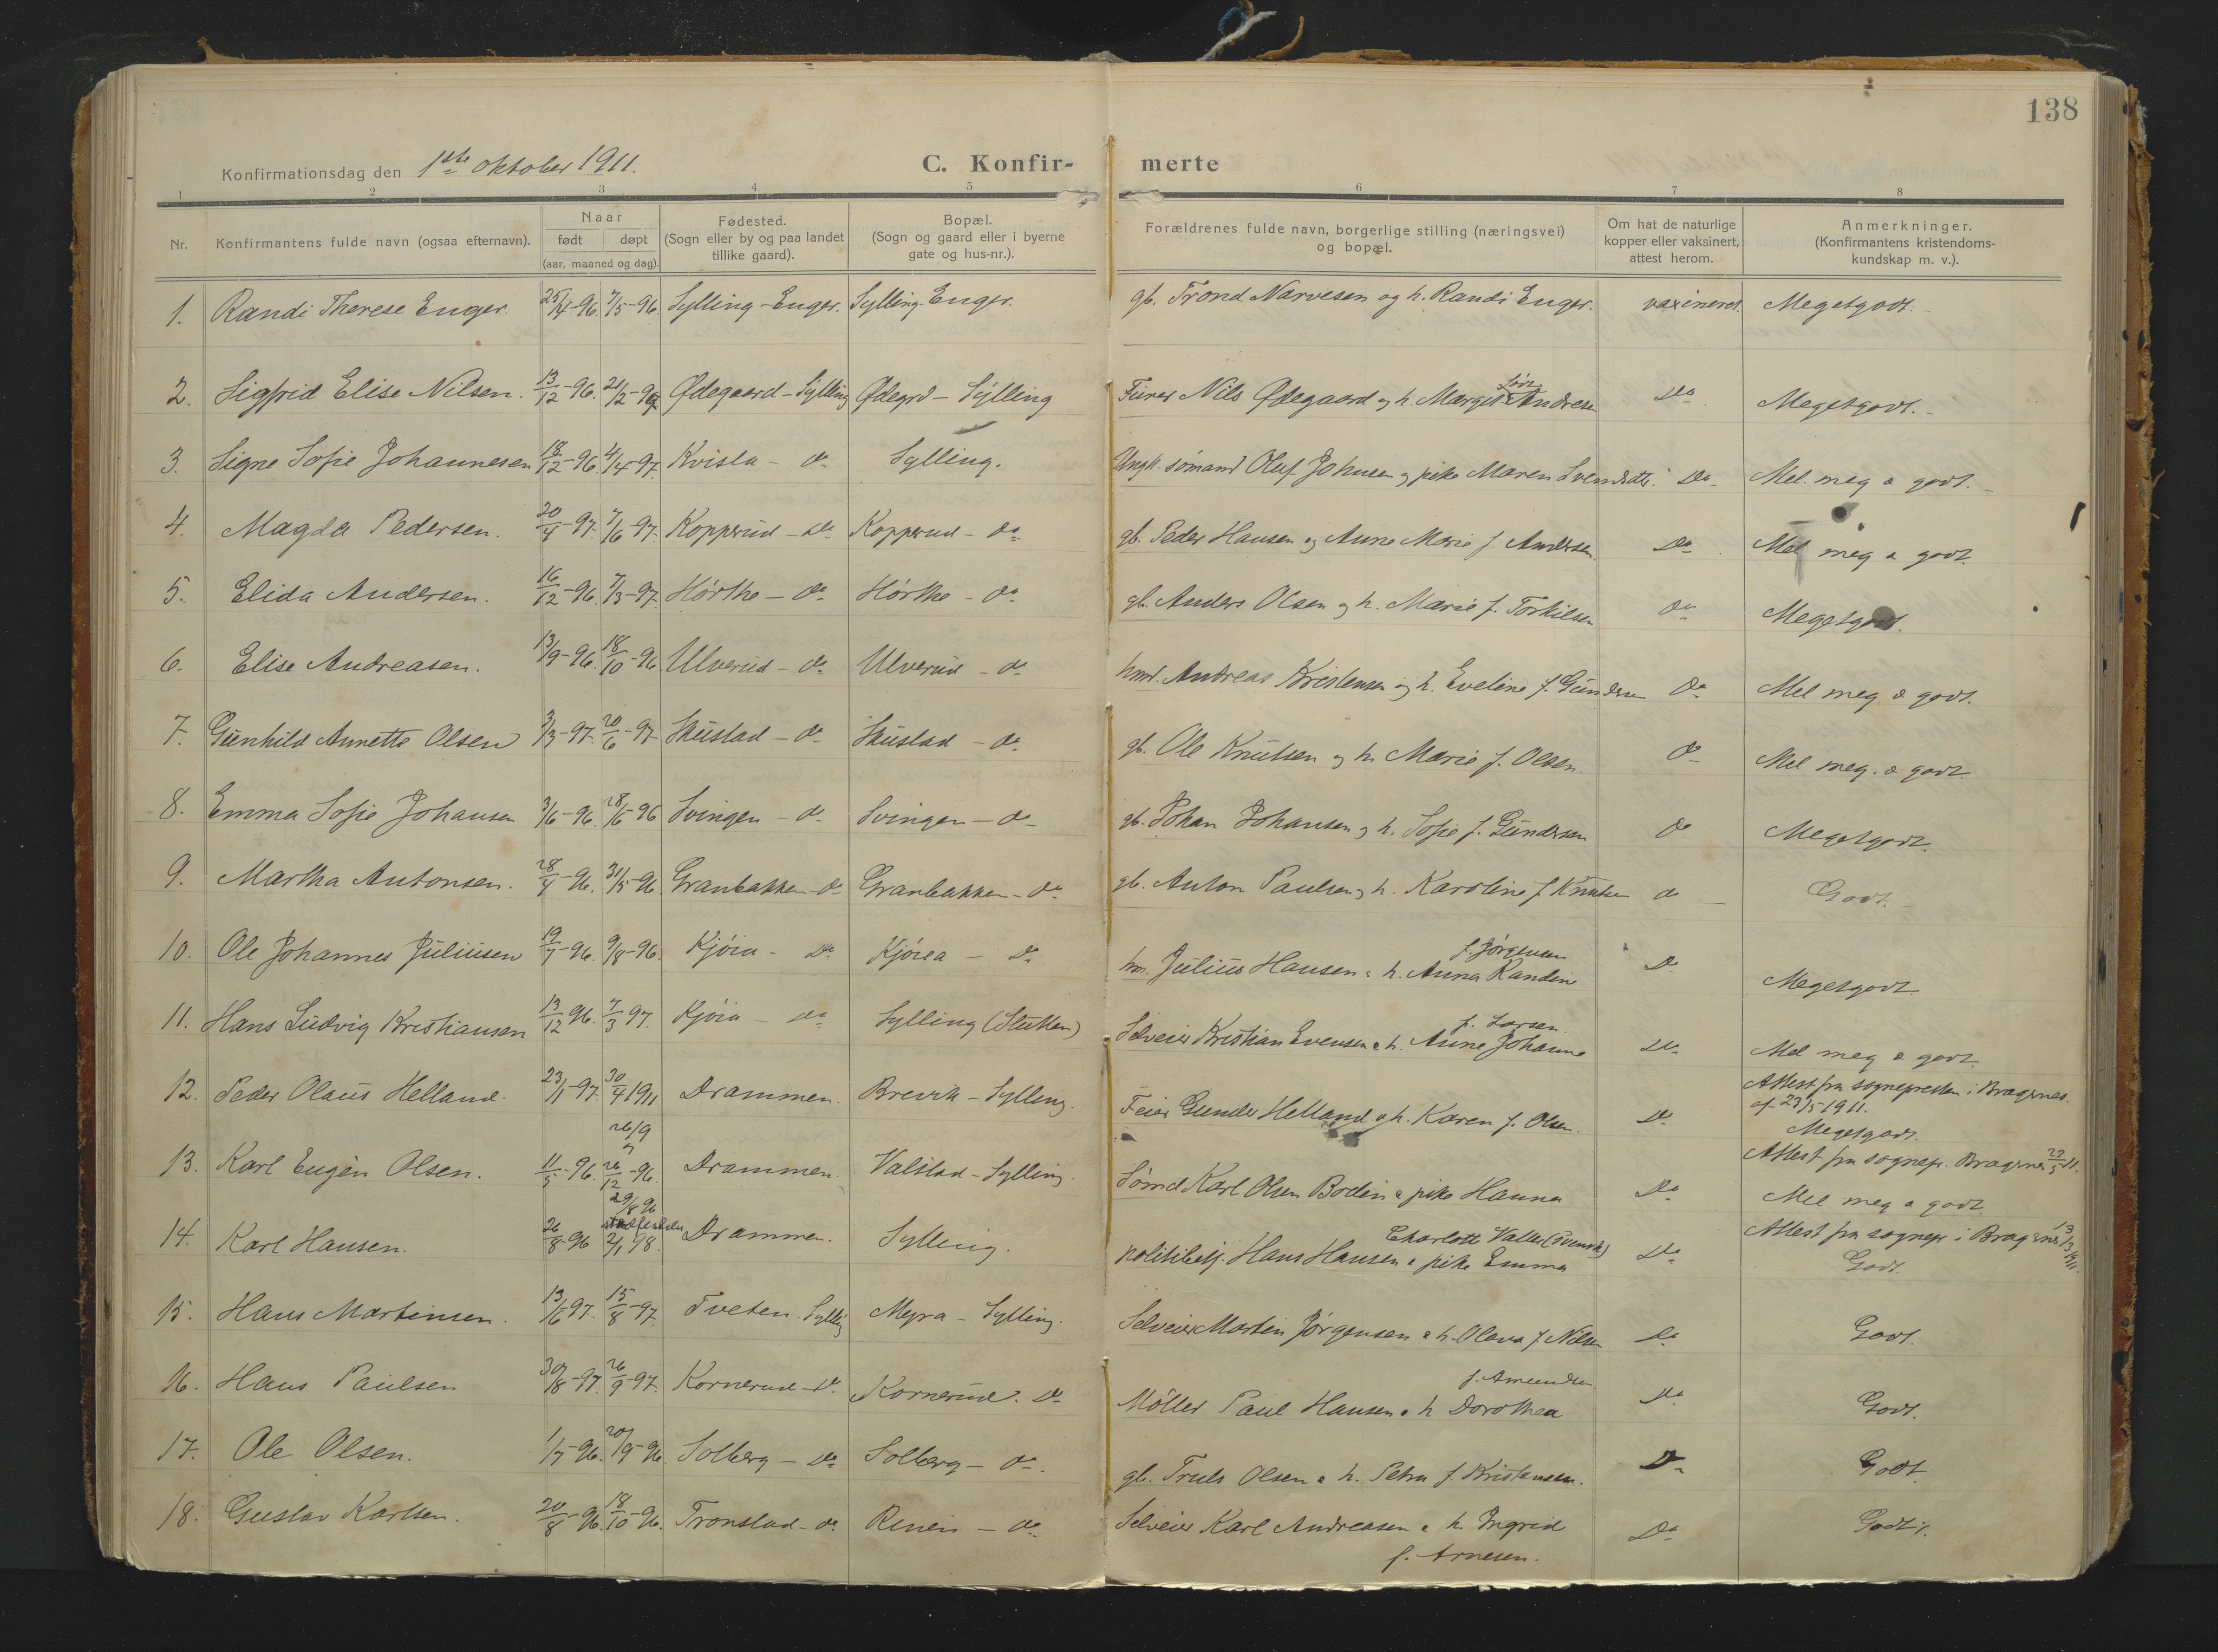 138
Konfirmationsdag den 1ste oktober 1911. C. Konfir- merte
1 2 3 4 5 6 7 8
Nr. Konfirmantens fulde navn (ogsaa efternavn). Naar født døpt (aar, maaned og dag). Fødested. (Sogn eller by og paa landet tillike gaard). Bopæl. (Sogn og gaard eller i byerne gate og hus-nr.). Forældrenes fulde navn, borgerlige stilling (næringsvei) og bopæl. Om hat de naturlige kopper eller vaksinert, attest herom. Anmerkninger. (Konfirmantens kristendoms- kundskap m. v.).
1. Randi Therese Enger. 25/4-96. 7/5-96. Sylling-Enger. Sylling-Enger. gb. Trond Narvesen og h. Randi Enger. vaxineret. Megetgodt.
2. Sigfrid Elise Nilsen. 13/12-96. 21/2-97 Ødegaard-Sylling Ødegrd-Sylling Furer Nils Ødegaard og h. Margit født Andresen Do Megetgodt.
3. Signe Sofie Johannesen 18/12-96. 4/4-97. Kvisla - do Sylling. Ungk. sømand Oluf Johnsen og pike Maren Svendsdtr. Do Mel. meg a godt.
4. Magda Pedersen. 20/4-97. 7/6-97. Kopperud - do Kopperud - do gb. Peder Hansen og Anne Marie f. Andersen. Do Mel meg a godt.
5. Elida Andersen. 16/12-96. 7/3-97. Hørthe - do Hørthe - do gb. Anders Olsen og h. Marie f. Torkilsen do Megetgodt.
6. Elise Andreasen. 13/9-96. 18/10-96. Ulverud - do Ulverud - do hmd. Andreas Kristensen og h. Eveline f. Gundersen do Mel meg a godt.
7. Gunhild Annette Olsen 3/3-97. 20/6-97 Skustad - do Skustad - do gb. Ole Knutsen og h. Marie f. Olsen do Mel meg. a godt.
8. Emma Sofie Johansen 3/6-96. 28/6-96 Svingen - do Svingen - do gb. Johan Johansen og h. Sofie f. Gundersen do Megetgodt.
9. Martha Antonsen. 28/4-96. 31/5-96. Granbakken - do Granbakken - do gb. Anton Paulsen og h. Karoline f Knutsen do Godt.
10. Ole Johannes Juliusen 19/7-96. 9/8-96. Kjøia - do Kjøiea - do hm. Julius Hansen & h. Anna Randine f. Jørgensen Do Megetgodt
11. Hans Ludvig Kristiansen 13/12 96. 7/3 97. Kjøia - do Sylling (Slutten) Selveier Kristian Evensen & h. Anne Johanne f. Larsen. Do Mel meg a godt.
12. Peder Olaus Helland. 23/1-97. 30/4 1911 Drammen. Brevik - Sylling. Feier Gunder Helland & h. Karen f. Olsen. Do Attest fra sognepresten i Bragernes.
af 23/5 1911.
Megetgodt.
13. Karl Eugèn Olsen. 11/5-96. 26/9
26/12-96. Drammen. Valstad - Sylling. Sømd Karl Olsen Bodin & pike Hanna Do Attest fra sognepr. Bragernes 23/5 11.
Mel meg a godt
14. Karl Hansen. 26/8 96 29/8 96
stadfestelse
2/1 98. Drammen. Sylling. politibetj. Hans Hansen & pike Emma Charlotte Valler (svensk) Do Attest fra sognepr i Bragernes
Godt.
15. Hans Martinsen. 13/6 97. 15/8-97. Tveten. Sylling Myra - Sylling. Selveier Martin Jørgensen & h. Olava f Nilsen Do Godt.
16. Hans Paulsen 30/8-97. 26/9-97. Kornerud - do Kornerud. do Møller Paul Hansen & h Dorothea f. Amundsen Do Godt.
17. Ole Olsen. 1/7-96. 20/9-96. Solberg - do Solberg - do. gb. Truls Olsen & h. Petra f. Kristensen. Do Godt.
18. Gustav Karlsen. 20/8-96. 18/10-96. Tronstad - do Renen - do Selveier Karl Andreasen & h. Ingrid
f. Arnesen. Do Godt.